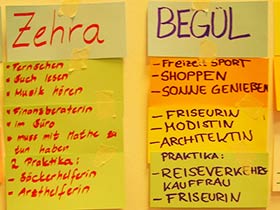 Zehra
• Fernsehen
• Buch lesen
• Musik hören
• Finanzberaterin
• im Büro
• muss mit Mathe zu
tun haben
2 Praktika:
- Bäckerhelferin
- Arzthelferin
BEGÜL
- Freizeit SPORT
- SHOPPEN
- SONNE GENIEßEN
- FRISEURIN
- MODISTIN
- ARCHITEKTIN
PRAKTIKA:
- REISEVERKEHRS
KAUFFRAU
- FRISEURIN